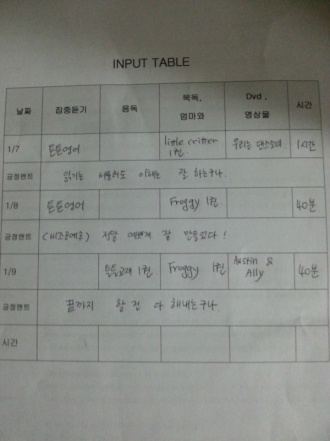 INPUT TABLE
날짜 집중듣기 음독 묵독, 엄마와 Dvd, 영상물 시간
1/7 튼튼영어 little critter 1권 우리는 댄스 1시간
긍정멘트 읽기는 서툴러도 이해는 잘 하는구나.
1/8 튼튼영어 Froggy 1권. 40분
긍정멘트 정말 예쁘게 잘 만들었다!
1/9 튼튼교재 1권. Froggy 1권 Austin & Ally 40분
긍정멘트 끝까지 할 집 다 해내는구나.
시간